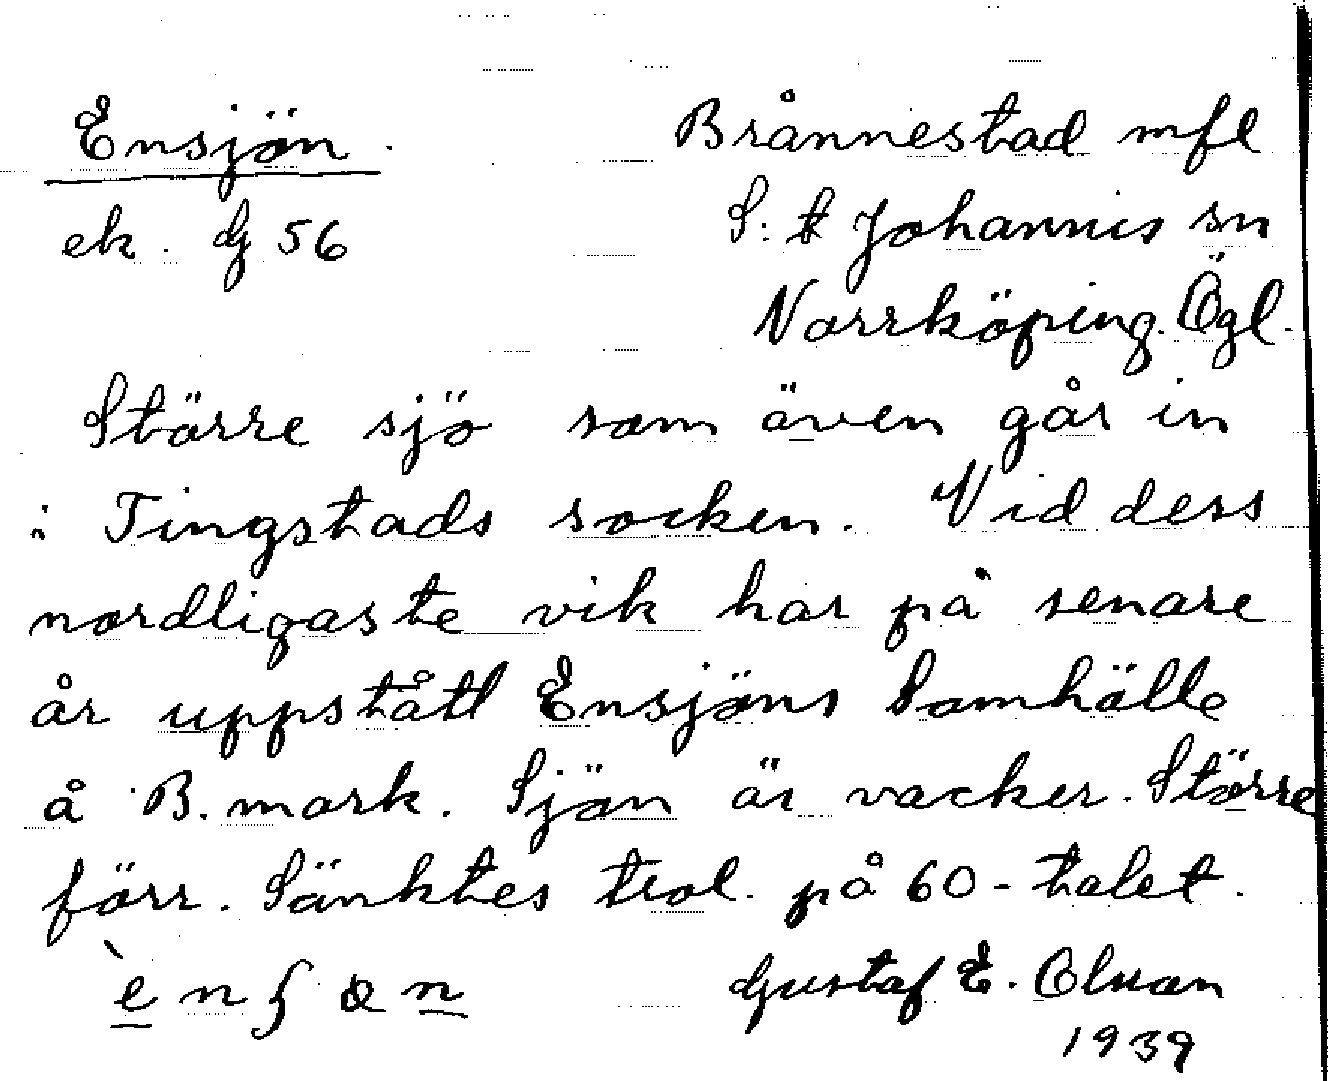 Ensjön. Brånnestad mfl
ek. Gj 56 S:t Johannis sn
Norrköping. Ögl.
Större sjö som även går in
i Tingstads socken. Vid dess
nordligaste vik har på senare
år uppstått Ensjöns Samhälle
å B. mark. Sjön är vacker. Större
förr. Sänktes trol. på 60-talet.
Gustaf E. Olsson
1939